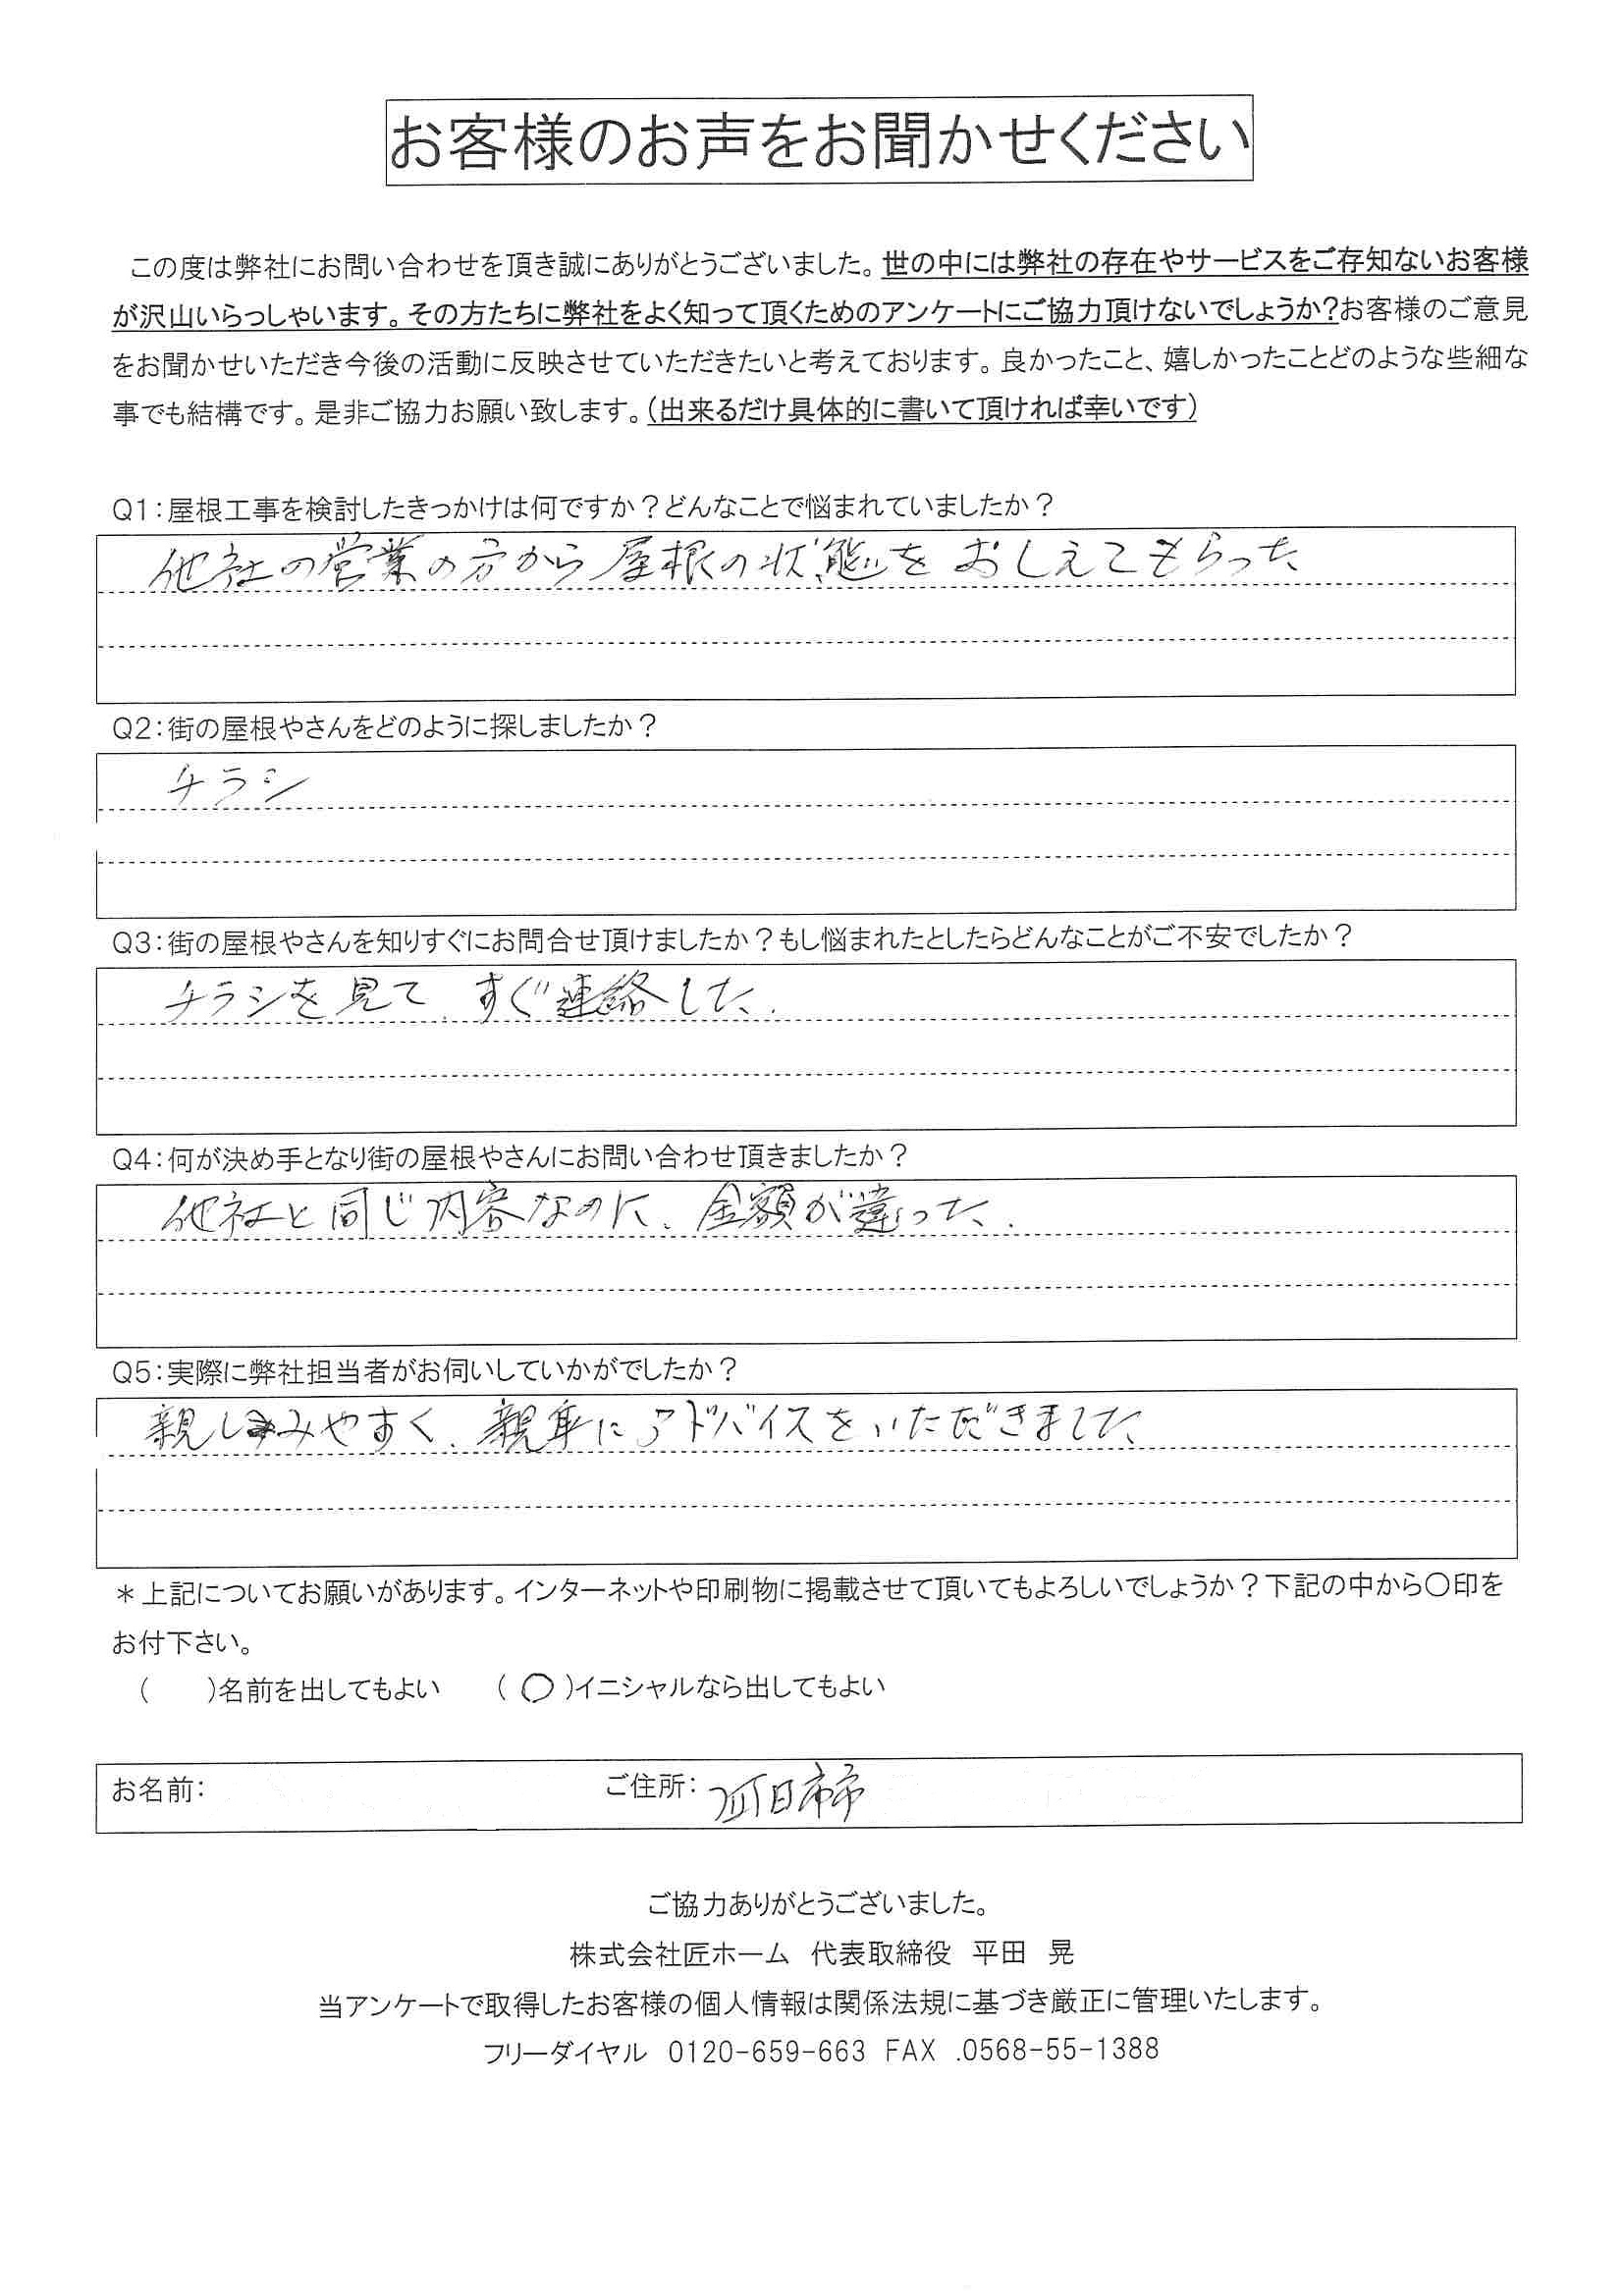 お客様のお声をお聞かせください
この度は弊社にお問い合わせを頂き誠にありがとうございました。世の中には弊社の存在やサービスをご存知ないお客様
が沢山いらっしゃいます。その方たちに弊社をよく知って頂くためのアンケートにご協力頂けないでしょうか?お客様のご意見
をお聞かせいただき今後の活動に反映させていただきたいと考えております。良かったこと、嬉しかったことどのような些細な
事でも結構です。是非ご協力お願い致します。(出来るだけ具体的に書いて頂ければ幸いです)
Q1:屋根工事を検討したきっかけは何ですか?どんなことで悩まれていましたか?
他社の営業の方から屋根の状態をおしえてもらった、
Q2:街の屋根やさんをどのように探しましたか?
チラシ
Q3:街の屋根やさんを知りすぐにお問合せ頂けましたか?もし悩まれたとしたらどんなことがご不安でしたか?
チラシを見て、すぐ連絡した、.
Q4:何が決め手となり街の屋根やさんにお問い合わせ頂きましたか?
他社と同じ内容なのに、金額が違った、.
Q5:実際に弊社担当者がお伺いしていかがでしたか?
親しみやすく、親身にアドバイスをいただきました、
*上記についてお願いがあります。インターネットや印刷物に掲載させて頂いてもよろしいでしょうか?下記の中から〇印を
お付下さい。
( )名前を出してもよい (〇)イニシャルなら出してもよい
お名前: ご住所:四日市市
ご協力ありがとうございました。
株式会社匠ホーム 代表取締役 平田 晃
当アンケートで取得したお客様の個人情報は関係法規に基づき厳正に管理いたします。
フリーダイヤル 0120-659-663 FAX .0568-55-1388